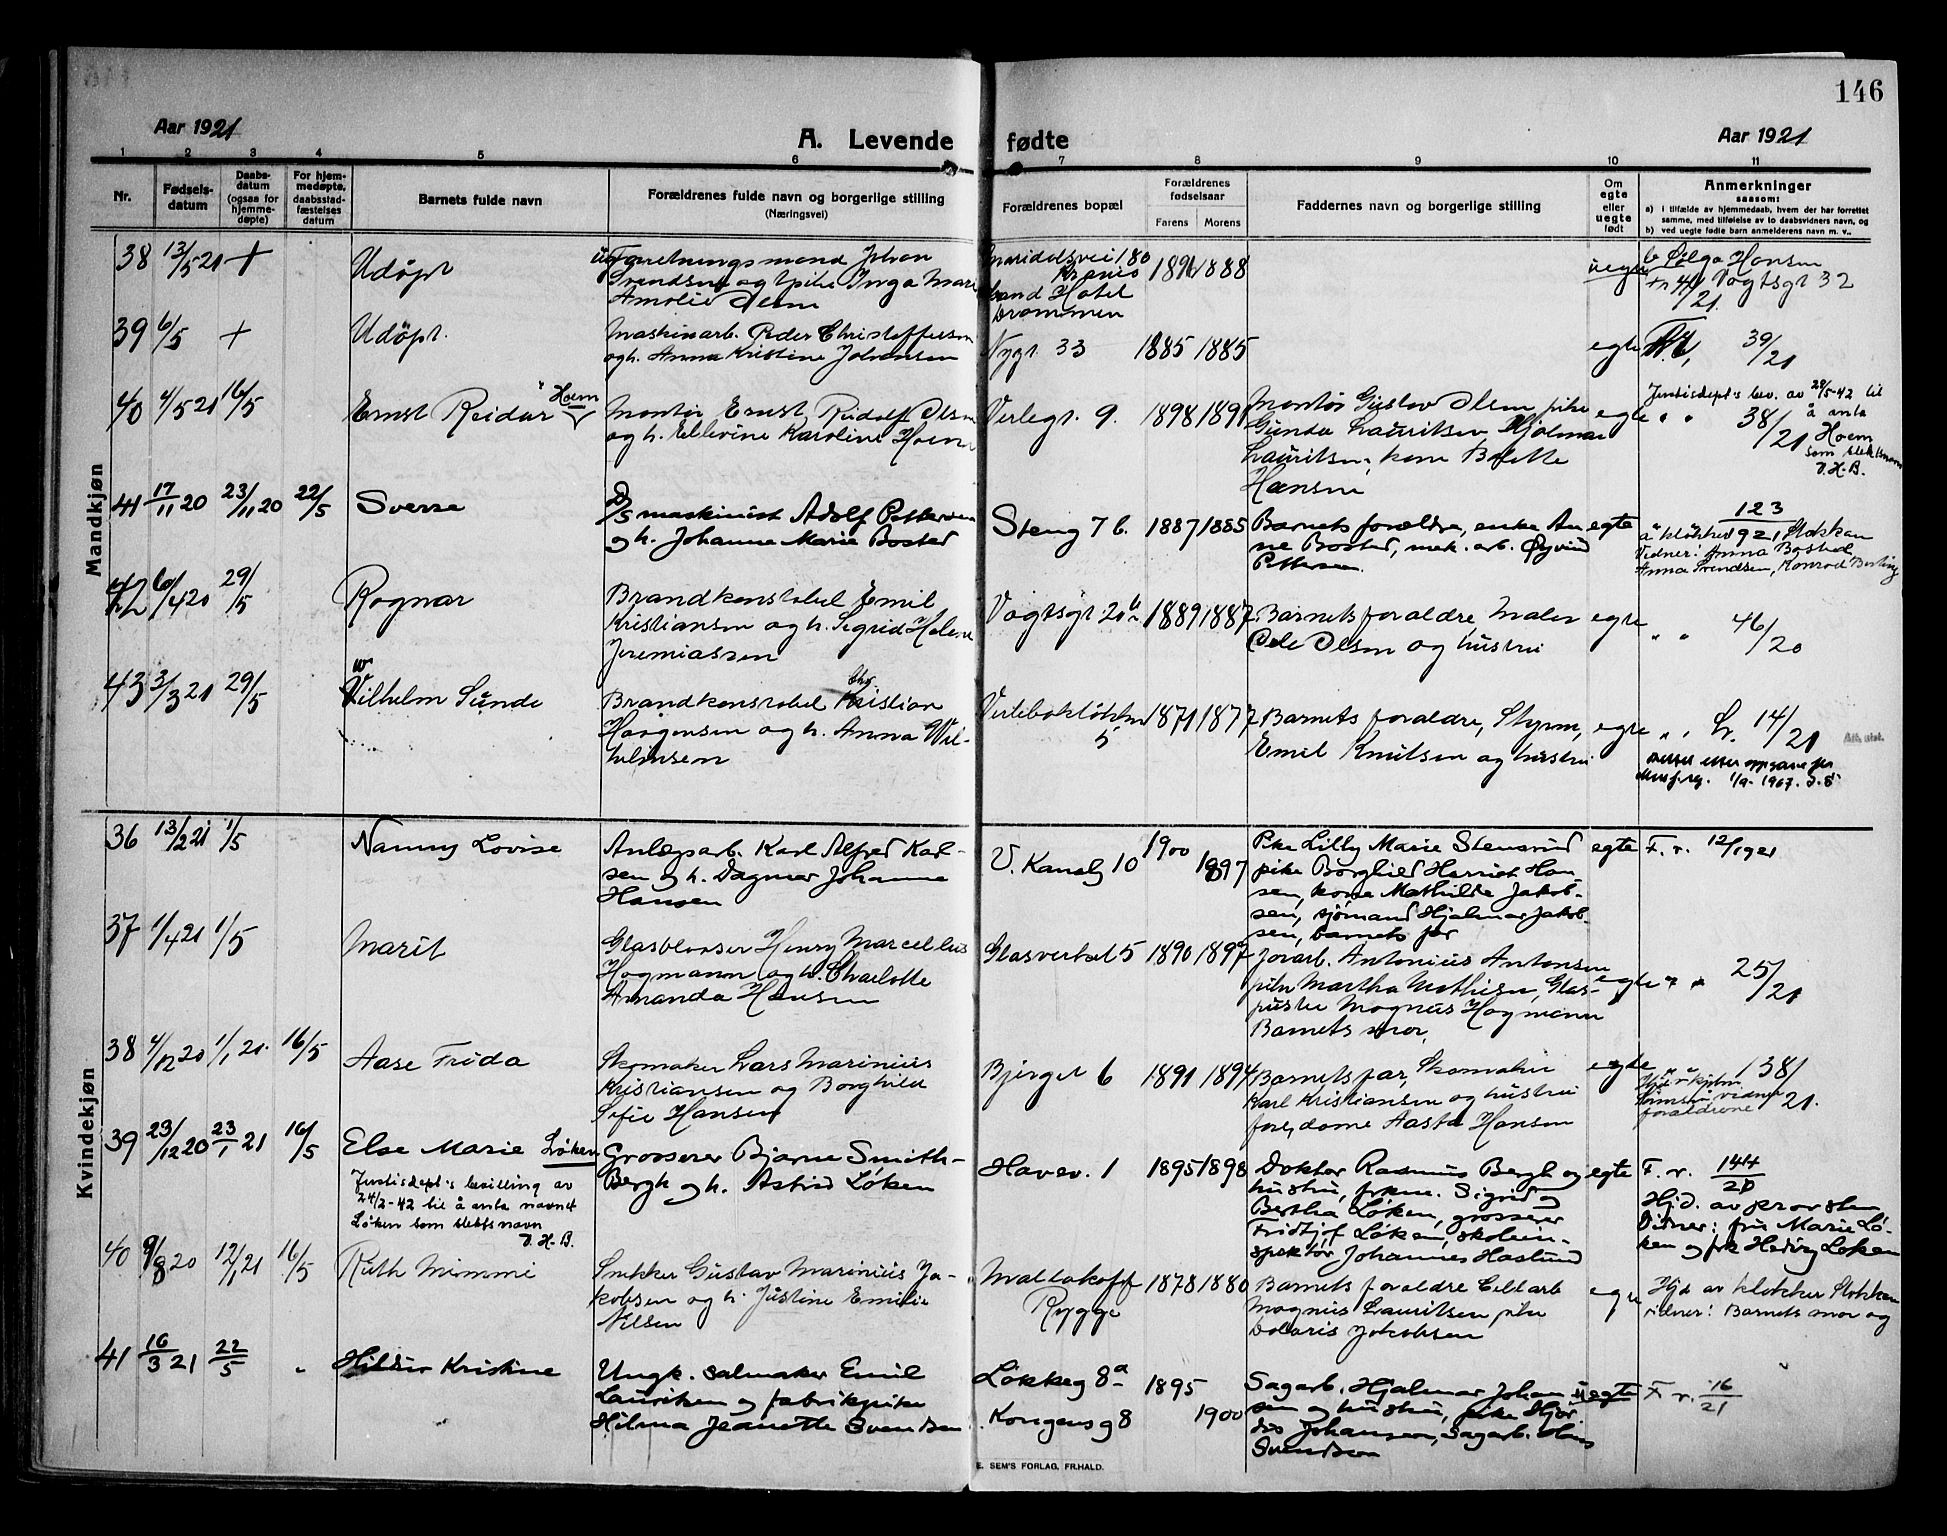 146
Aar 1921
A. Levende fødte
Aar 1921
1 2 3 4 5 6 7 8 9 10 11
Nr.
Fødsels-
datum
Daabs-
datum
(ogsaa for
hjemme-
døpte)
For hjem-
medøpte,
daabsstad-
fæstelses
datum
Barnets fulde navn
Forældrenes fulde navn og borgerlige stilling
(Næringsvei)
Forældrenes bopæl
Forældrenes
fødselsaar
Farens Morens
Faddernes navn og borgerlige stilling
Om
egte
eller
uegte
født
Anmerkninger
saasom:
a) i tilfælde av hjemmedaab, hvem der har forrettet
samme, med tilføielse av to daabsvidners navn, og
b) ved uegte fødte barn anmelderens navn m. v..
Mandkjøn
38 13/5 21 +
Udöpt
Forretningsmand Johan
Svendsen og pike Inga Marie
Amalie Olsen
Maridalsvei 180
Kra
Hotel
Drammen
1888
uegte
b Helga Hansen
Vogtsgt 32
39 6/5 +
Udöpt.
Maskinarb. Peder Christoffersen
og h. Anna Kristine Johansen
Nygt. 33
1885 1885
egte
39/21
40 4/5 21 16/5
Ernst Reidar Hoem
Montör Ernst Rudolf Olsen
og h. Ellevine Karoline Hoem
Verlegt. 9.
1898 1891
Montör Gustav Olsen, pike
Gunda Lauritsen, Hjalmar
Lauritsen, kone Bolette
Hansen
egte
Justisdept's bev. av 28/5-42 til
å anta
Hoem
som slektsnavn
T. H. B.
" " 38/21
41 17/11 20 23/11 20 22/5
Sverre
D/S maskinist Adolf Pettersen
og h. Johanne Marie Bosted
Steng 7 b.
1887 1885
Barnets forældre, enke An-
ne Bosted, mek. arb. Øyvind
Pettersen.
egte
123
921
a klokker Stokkan
Vidner: Anna Bosted,
Anna Svendsen, Konrad
42 6/4 20 29/5
Ragnar
Brandkonstabel Emil
Kristiansen og h. Sigrid Helene
Jeremiassen
Vogtsgt 20 b
1889 1887
Barnets foraldre, Maler
Ole Olsen og hustru
egte
" " 46/20
43 3/3 21 29/5
W
Vilhelm Sunde
Brandkonstabel Kristian
Chr.
Hargensen og h. Anna Wil-
helmsen
5
1871 1877
Barnets foraldre, Styrm,
Emil Knutsen og hustru
egte
" , Lr. 14/21
rettet etter oppgave fra
1/9-1967.
Kvindekjøn
36 13/2 21 1/5
Nanny Lovise
Anlægsarb. Karl Alfred Karl-
sen og h. Dagmar Johanne
Hansen
V. Kanalg 10
1900
1897
Pike Lilly Marie Stensrud
pike Borghild Harriet Han-
sen, kone Mathilde Jakob-
sen, sjömand Hjalmar Jakob-
sen, barnets far
egte
F. r. 12/1921
37 1/4 21 1/5
Marit
Glasblaaser Henry Marcellius
Hagmann og h. Charlotte
Amanda Hansen
Glasverket 5
1890 1897
Jorarb. Antonius Antonsen
pike Martha Mathisen, Glas-
puster Magnus Hagmann
Barnets mor,
egte
" " 25/21
38 4/12 20 1/1 21. 16/5
Aase Frida
Skomaker Lars Marinius
Kristiansen og Borghild
Sofie Hansen
Bjerget 6
1891 1894
Barnets far, Skomaker
Karl Kristiansen og hustru
forejdame Aasta Hansen
egte
" " 138/21.
vidner
foraldrene
39 23/12 20 23/1 21 16/5
Else Marie Løken
Justisdept's bevilling av
24/2-42 til å anta navnet
Løken som slektsnavn
T. H. B.
Grosserer Bjarne Smith-
Bergh og h. Astrid Løken
Havev. 1
1895 1898
Doktor Rasmus Bergh og
hustru, frkne. Sigrid og
Bertha Løken, grosserer
Fridtjof Løken, skolein-
spektør Johannes Haslund
egte
F. r. 144/21
Hjd. av provsten
Vidner: fru Marie Lø-
ken og frk Hedvig Løken
40 9/8 20 12/1 21 16/5
Ruth Mimmi
Snekker Gustav Marinius Ja-
kobsen og h. Justine Emilie
Nilsen
Mallakoff
Rygge
1878 1880
Barnets foraldre Cellarb
Magnus Lauritsen, pike
Dolaris Jakobsen
egte
Hjd av klokker Stokkan
vidner: Barnets mor og
41 16/3 21 22/5 "
Hildur Kristine
Ungk. salmaker Emil
Lauritzen og fabrikpike
Hilma Jeanette Svendsen
Løkkeg 8a
Kongensg 8
1895
1900
Sagarb. Hjalmar Johan-
sen og hustru, pike Hjör-
dis Johansen, Sagarb. Hans
Svendsen
uegte
F. r. 16/21
E. SEM'S FORLAG, FR.HALD.